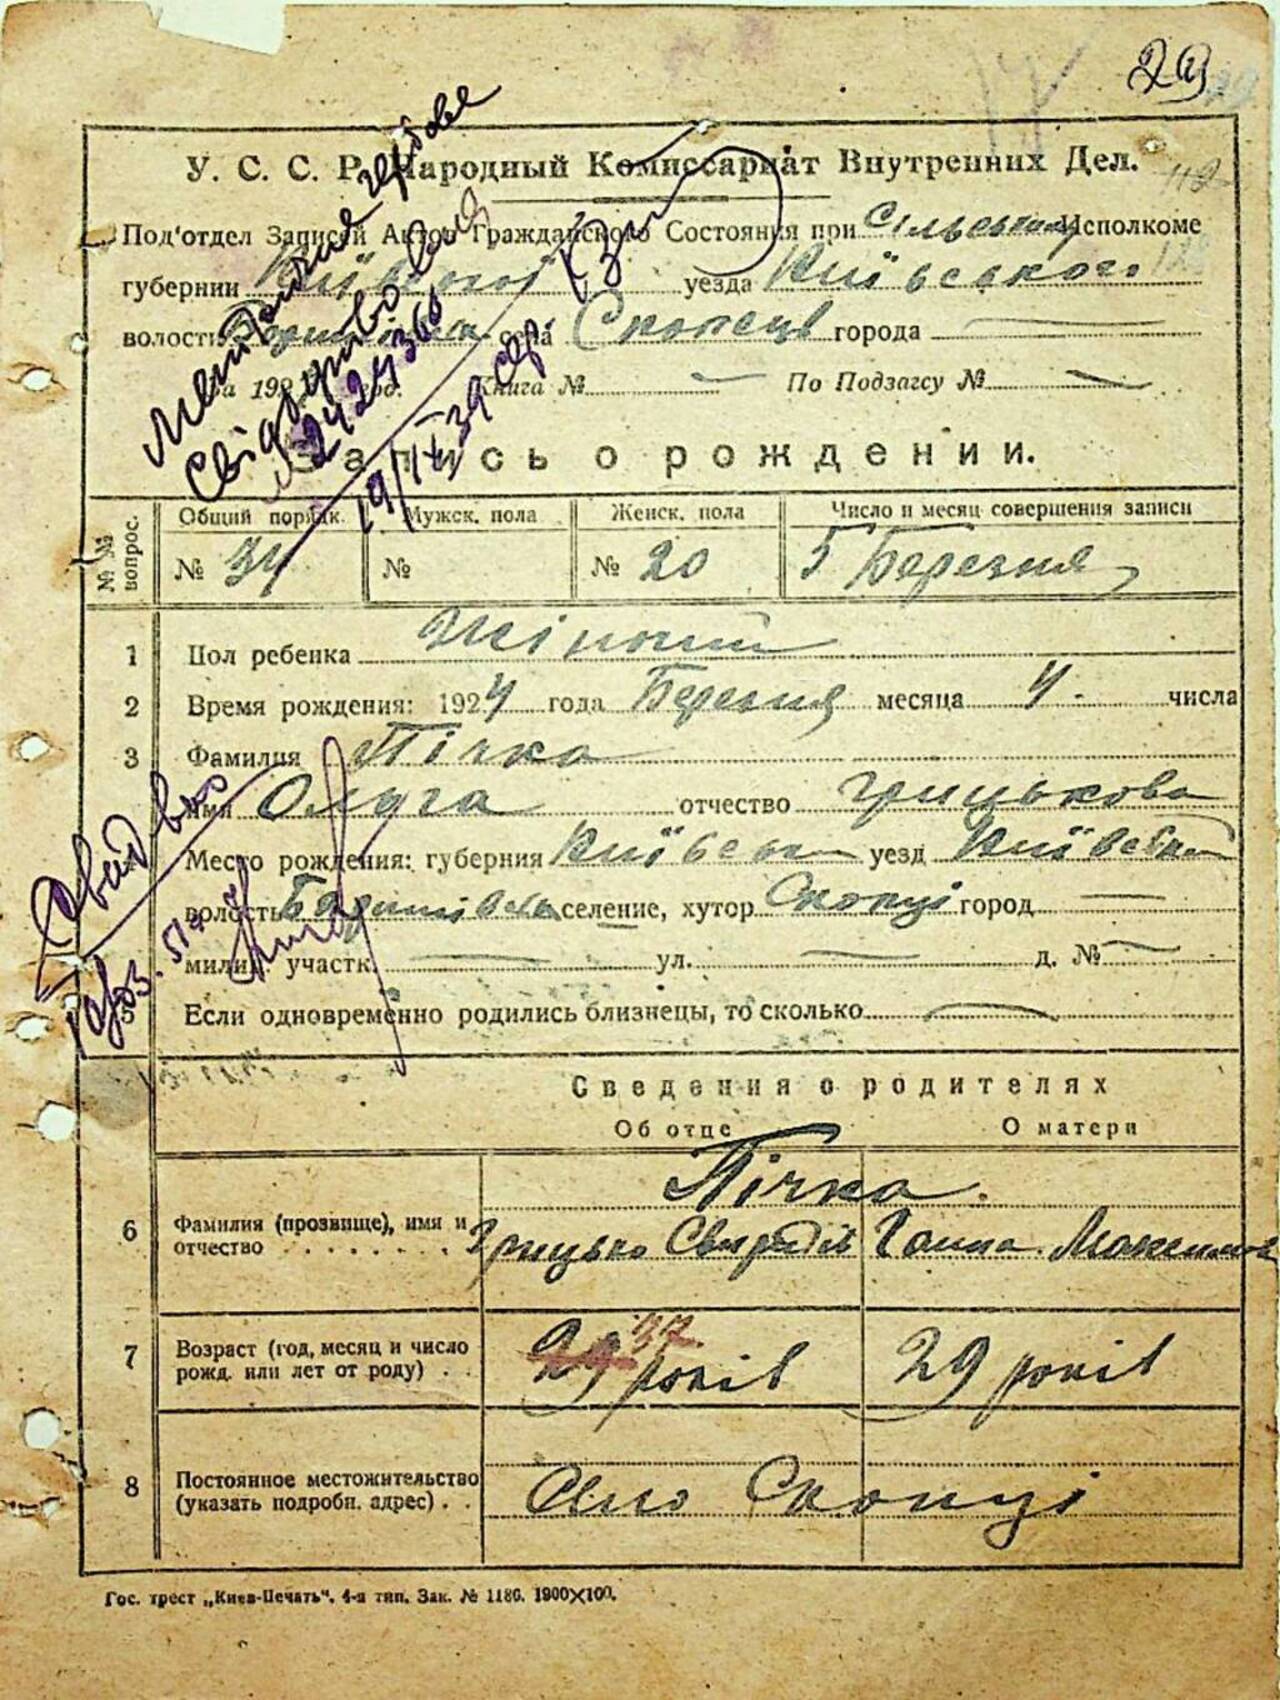 29
У. С. С. Р. Народный Комиссариат Внутренних Дел.
112
Под'отдел Записей Актов Гражданского Состояния при Сільським Исполкоме
губернии Київської уезда Київського
волости села Скопець города
за 192 год. Книга № По Подзагсу №
Запись о рождении.
№№ вопрос. Общий порядк. Мужск. пола Женск. пола Число и месяц совершения записи
№ 34 № № 20 5 Березня
1 Пол ребенка Жіночий
2 Время рождения: 1924 года Березня месяца 4. числа
3 Фамилия Пічка
имя Ольга отчество Грицькова
Место рождения: губерния Київськ уезд Київськ
волость Баришівська селение, хутор Скопці город
милиц. участк. ул. д. №
5 Если одновременно родились близнецы, то сколько
Сведения о родителях
Об отце О матери
Пічка.
6 Фамилия (прозвище), имя и отчество Грицько Свиридів Ганна Максимов
7 Возраст (год, месяц и число рожд. или лет от роду) 29 37 років 29 років
8 Постоянное местожительство (указать подробн. адрес) Село Скопці
Гос. трест „Киев-Печать“. 4-я тип. Зак. № 1186. 1900×100.